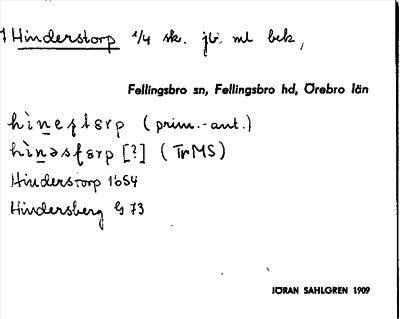 1 Hinderstorp 1/4 sk. jb. ml bek,
Fellingsbro sn, Fellingsbro hd, Örebro län
(prim.-ant.)
[?] (TrMS)
Hinderstorp 1654
Hindersberg G 73
JÖRAN SAHLGREN 1909